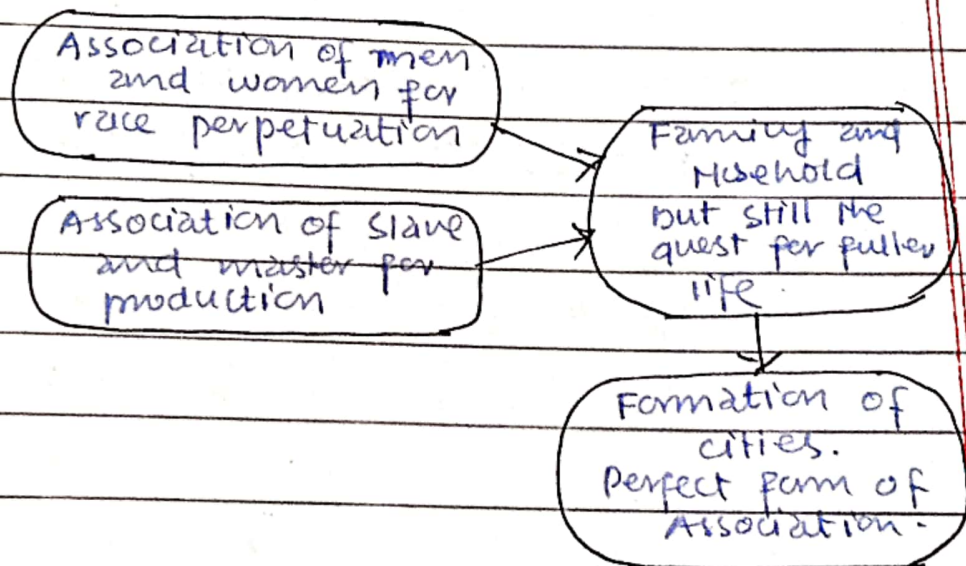 Association of men
and women for
race perpetuation
Association of slave
and master for
production
Family and
Household
but still the
quest for fuller
life.
Formation of
cities.
Perfect form of
Association.